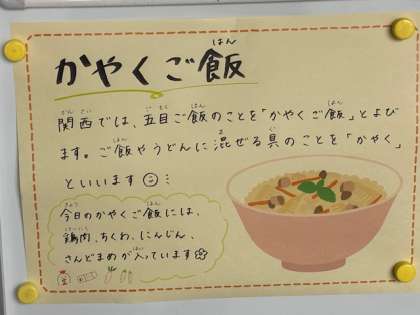 かやくご飯
はん
関西では、五目ご飯のことを「かやくご飯」とよび
かんさい ごもく はん はん
ます。ご飯やうどんに混ぜる具のことを「かやく」
はん ま ぐ
といいます
今日のかやくご飯には、
きょう はん
鶏肉、ちくわ、にんじん、
とりにく
さんどまめが入っています
はい